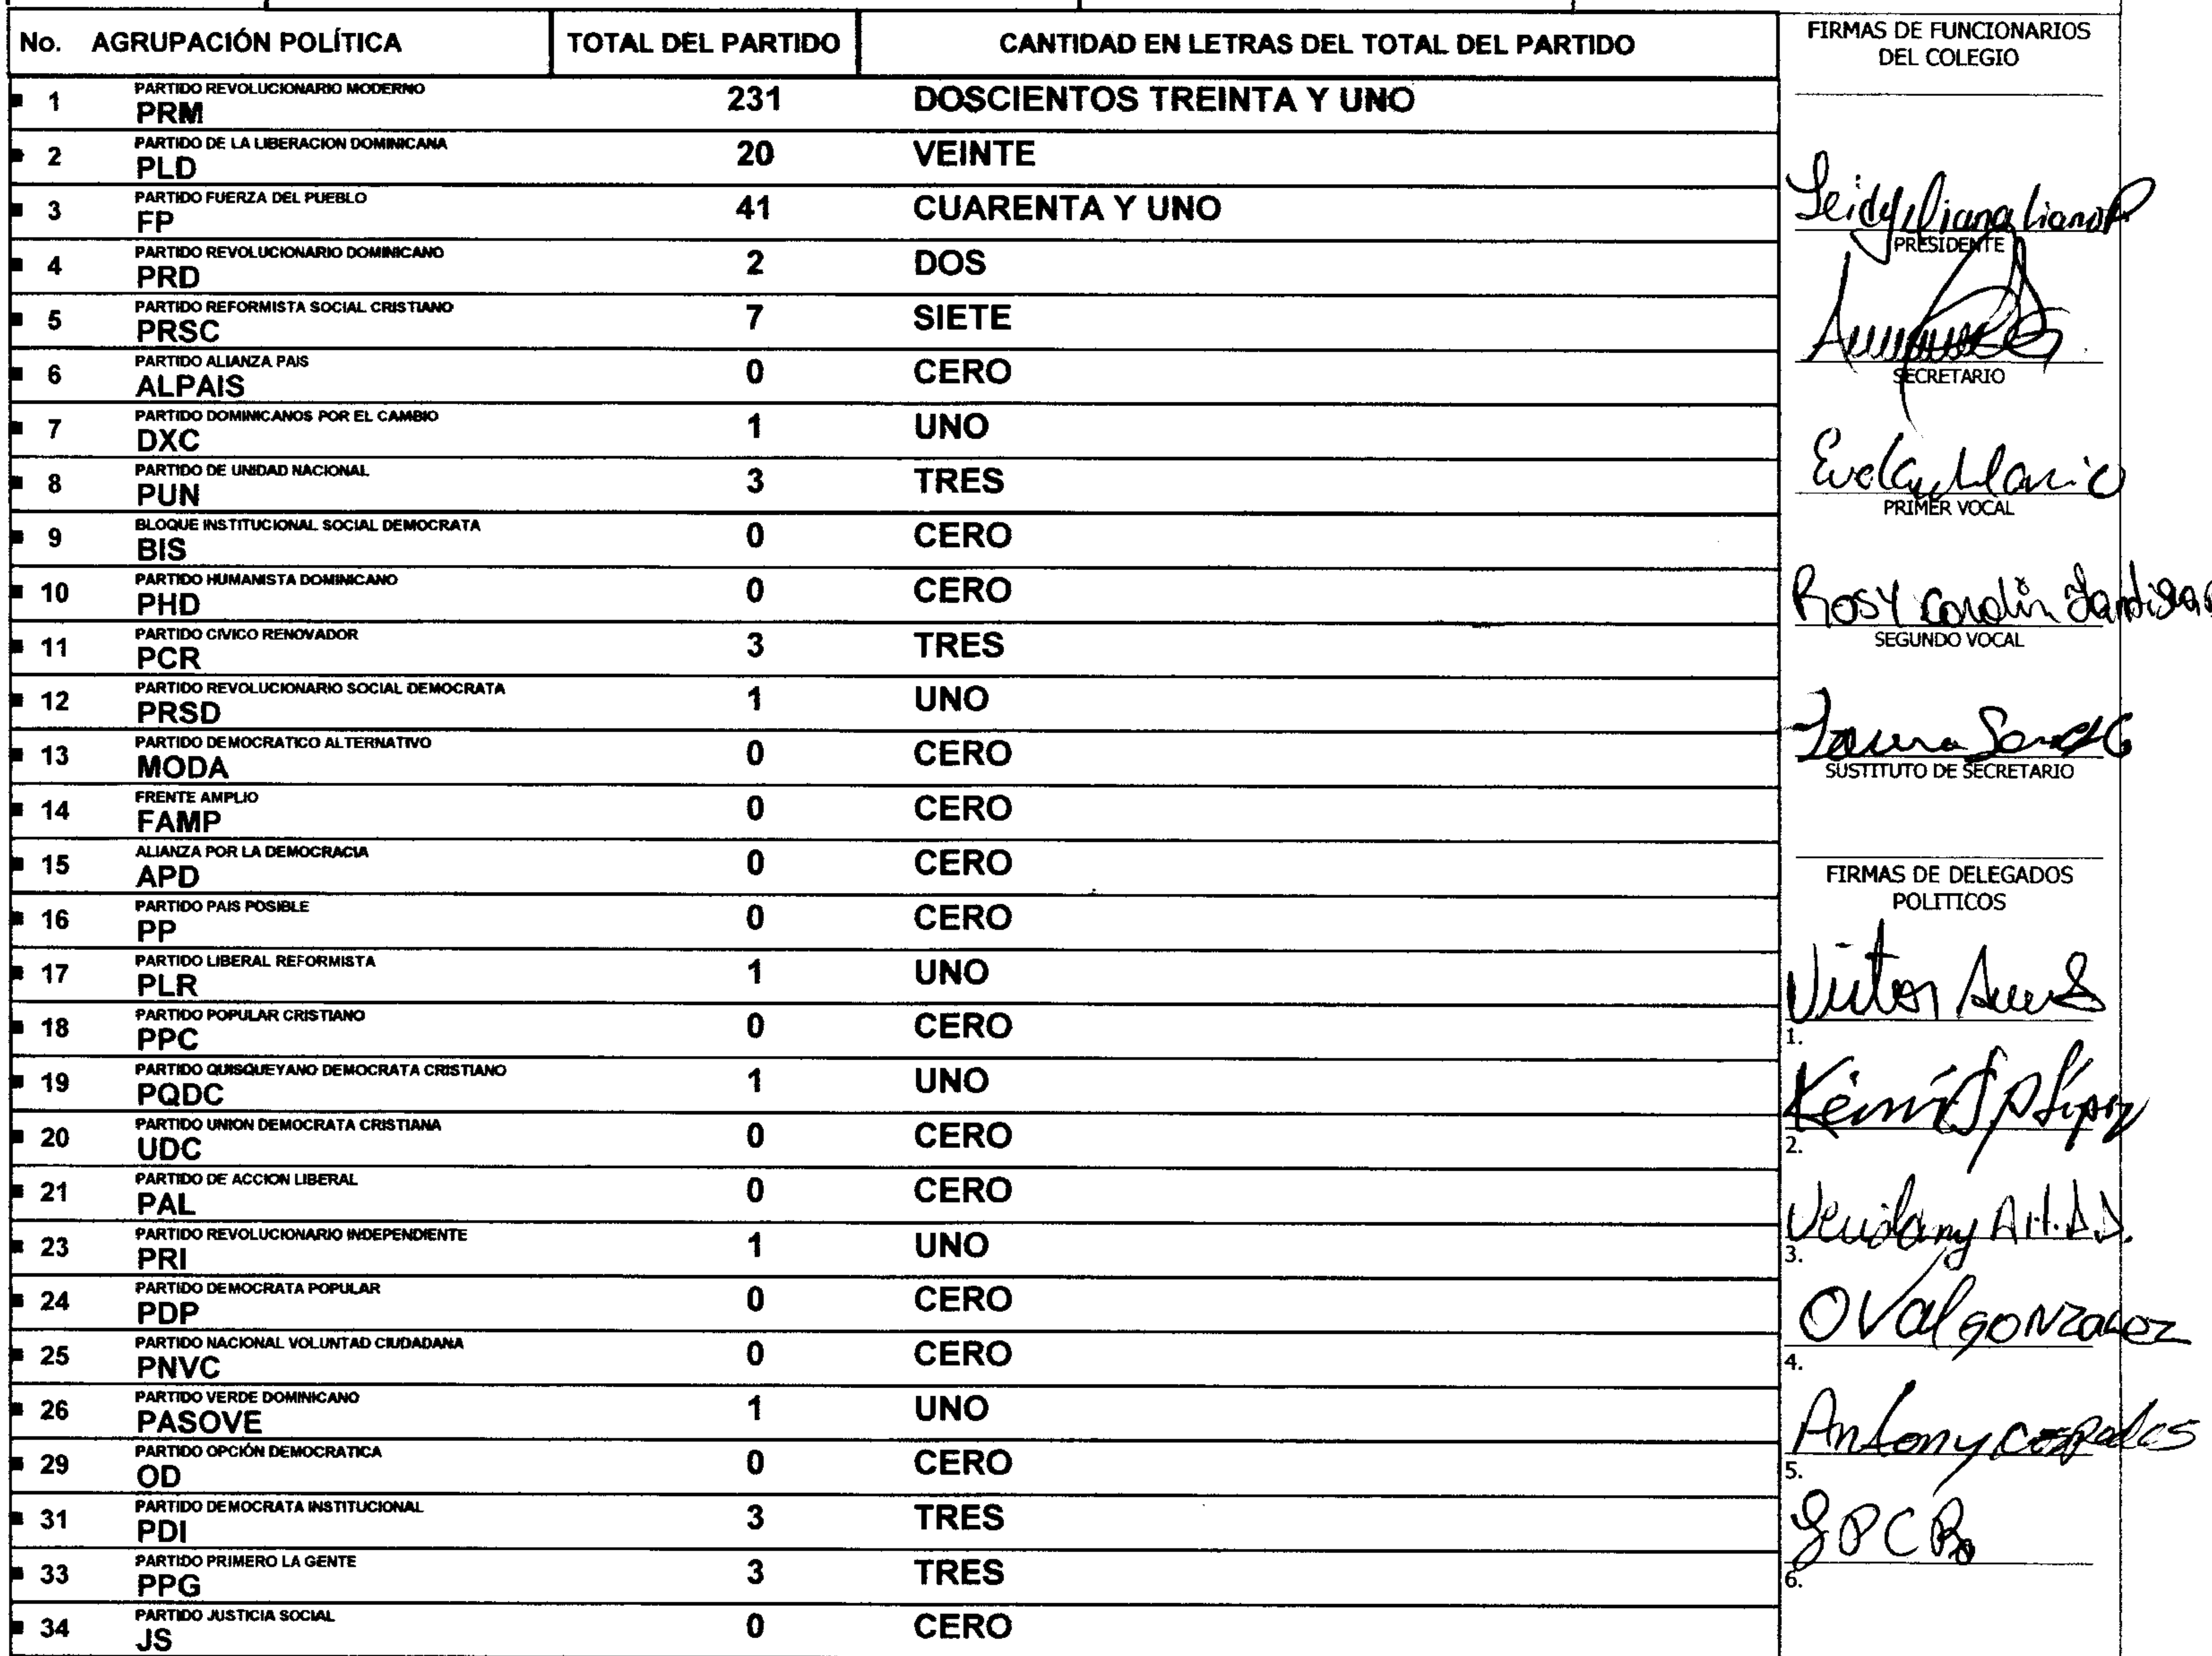 No. AGRUPACIÓN POLÍTICA TOTAL DEL PARTIDO CANTIDAD EN LETRAS DEL TOTAL DEL PARTIDO
PARTIDO REVOLUCIONARIO MODERNO
1 PRM 231 DOSCIENTOS TREINTA Y UNO
PARTIDO DE LA LIBERACION DOMINICANA
2 PLD 20 VEINTE
PARTIDO FUERZA DEL PUEBLO
3 FP 41 CUARENTA Y UNO
PARTIDO REVOLUCIONARIO DOMINICANO
4 PRD 2 DOS
PARTIDO REFORMISTA SOCIAL CRISTIANO
5 PRSC 7 SIETE
PARTIDO ALIANZA PAIS
6 ALPAIS 0 CERO
PARTIDO DOMINICANOS POR EL CAMBIO
7 DXC 1 UNO
PARTIDO DE UNIDAD NACIONAL
8 PUN 3 TRES
BLOQUE INSTITUCIONAL SOCIAL DEMOCRATA
9 BIS 0 CERO
PARTIDO HUMANISTA DOMINICANO
10 PHD 0 CERO
PARTIDO CIVICO RENOVADOR
11 PCR 3 TRES
PARTIDO REVOLUCIONARIO SOCIAL DEMOCRATA
12 PRSD 1 UNO
PARTIDO DEMOCRATICO ALTERNATIVO
13 MODA 0 CERO
FRENTE AMPLIO
14 FAMP 0 CERO
ALIANZA POR LA DEMOCRACIA
15 APD 0 CERO
PARTIDO PAIS POSIBLE
16 PP 0 CERO
PARTIDO LIBERAL REFORMISTA
17 PLR 1 UNO
PARTIDO POPULAR CRISTIANO
18 PPC 0 CERO
PARTIDO QUISQUEYANO DEMOCRATA CRISTIANO
19 PQDC 1 UNO
PARTIDO UNION DEMOCRATA CRISTIANA
20 UDC 0 CERO
PARTIDO DE ACCION LIBERAL
21 PAL 0 CERO
PARTIDO REVOLUCIONARIO INDEPENDIENTE
23 PRI 1 UNO
PARTIDO DEMOCRATA POPULAR
24 PDP 0 CERO
PARTIDO NACIONAL VOLUNTAD CIUDADANA
25 PNVC 0 CERO
PARTIDO VERDE DOMINICANO
26 PASOVE 1 UNO
PARTIDO OPCIÓN DEMOCRATICA
29 OD 0 CERO
PARTIDO DEMOCRATA INSTITUCIONAL
31 PDI 3 TRES
PARTIDO PRIMERO LA GENTE
33 PPG 3 TRES
PARTIDO JUSTICIA SOCIAL
34 JS 0 CERO
FIRMAS DE FUNCIONARIOS
DEL COLEGIO
PRESIDENTE
SECRETARIO
PRIMER VOCAL
Rosy
SEGUNDO VOCAL
SUSTITUTO DE SECRETARIO
FIRMAS DE DELEGADOS
POLITICOS
Victor
1.
2.
3.
Oval gonzalez
4.
Antony
5.
6.